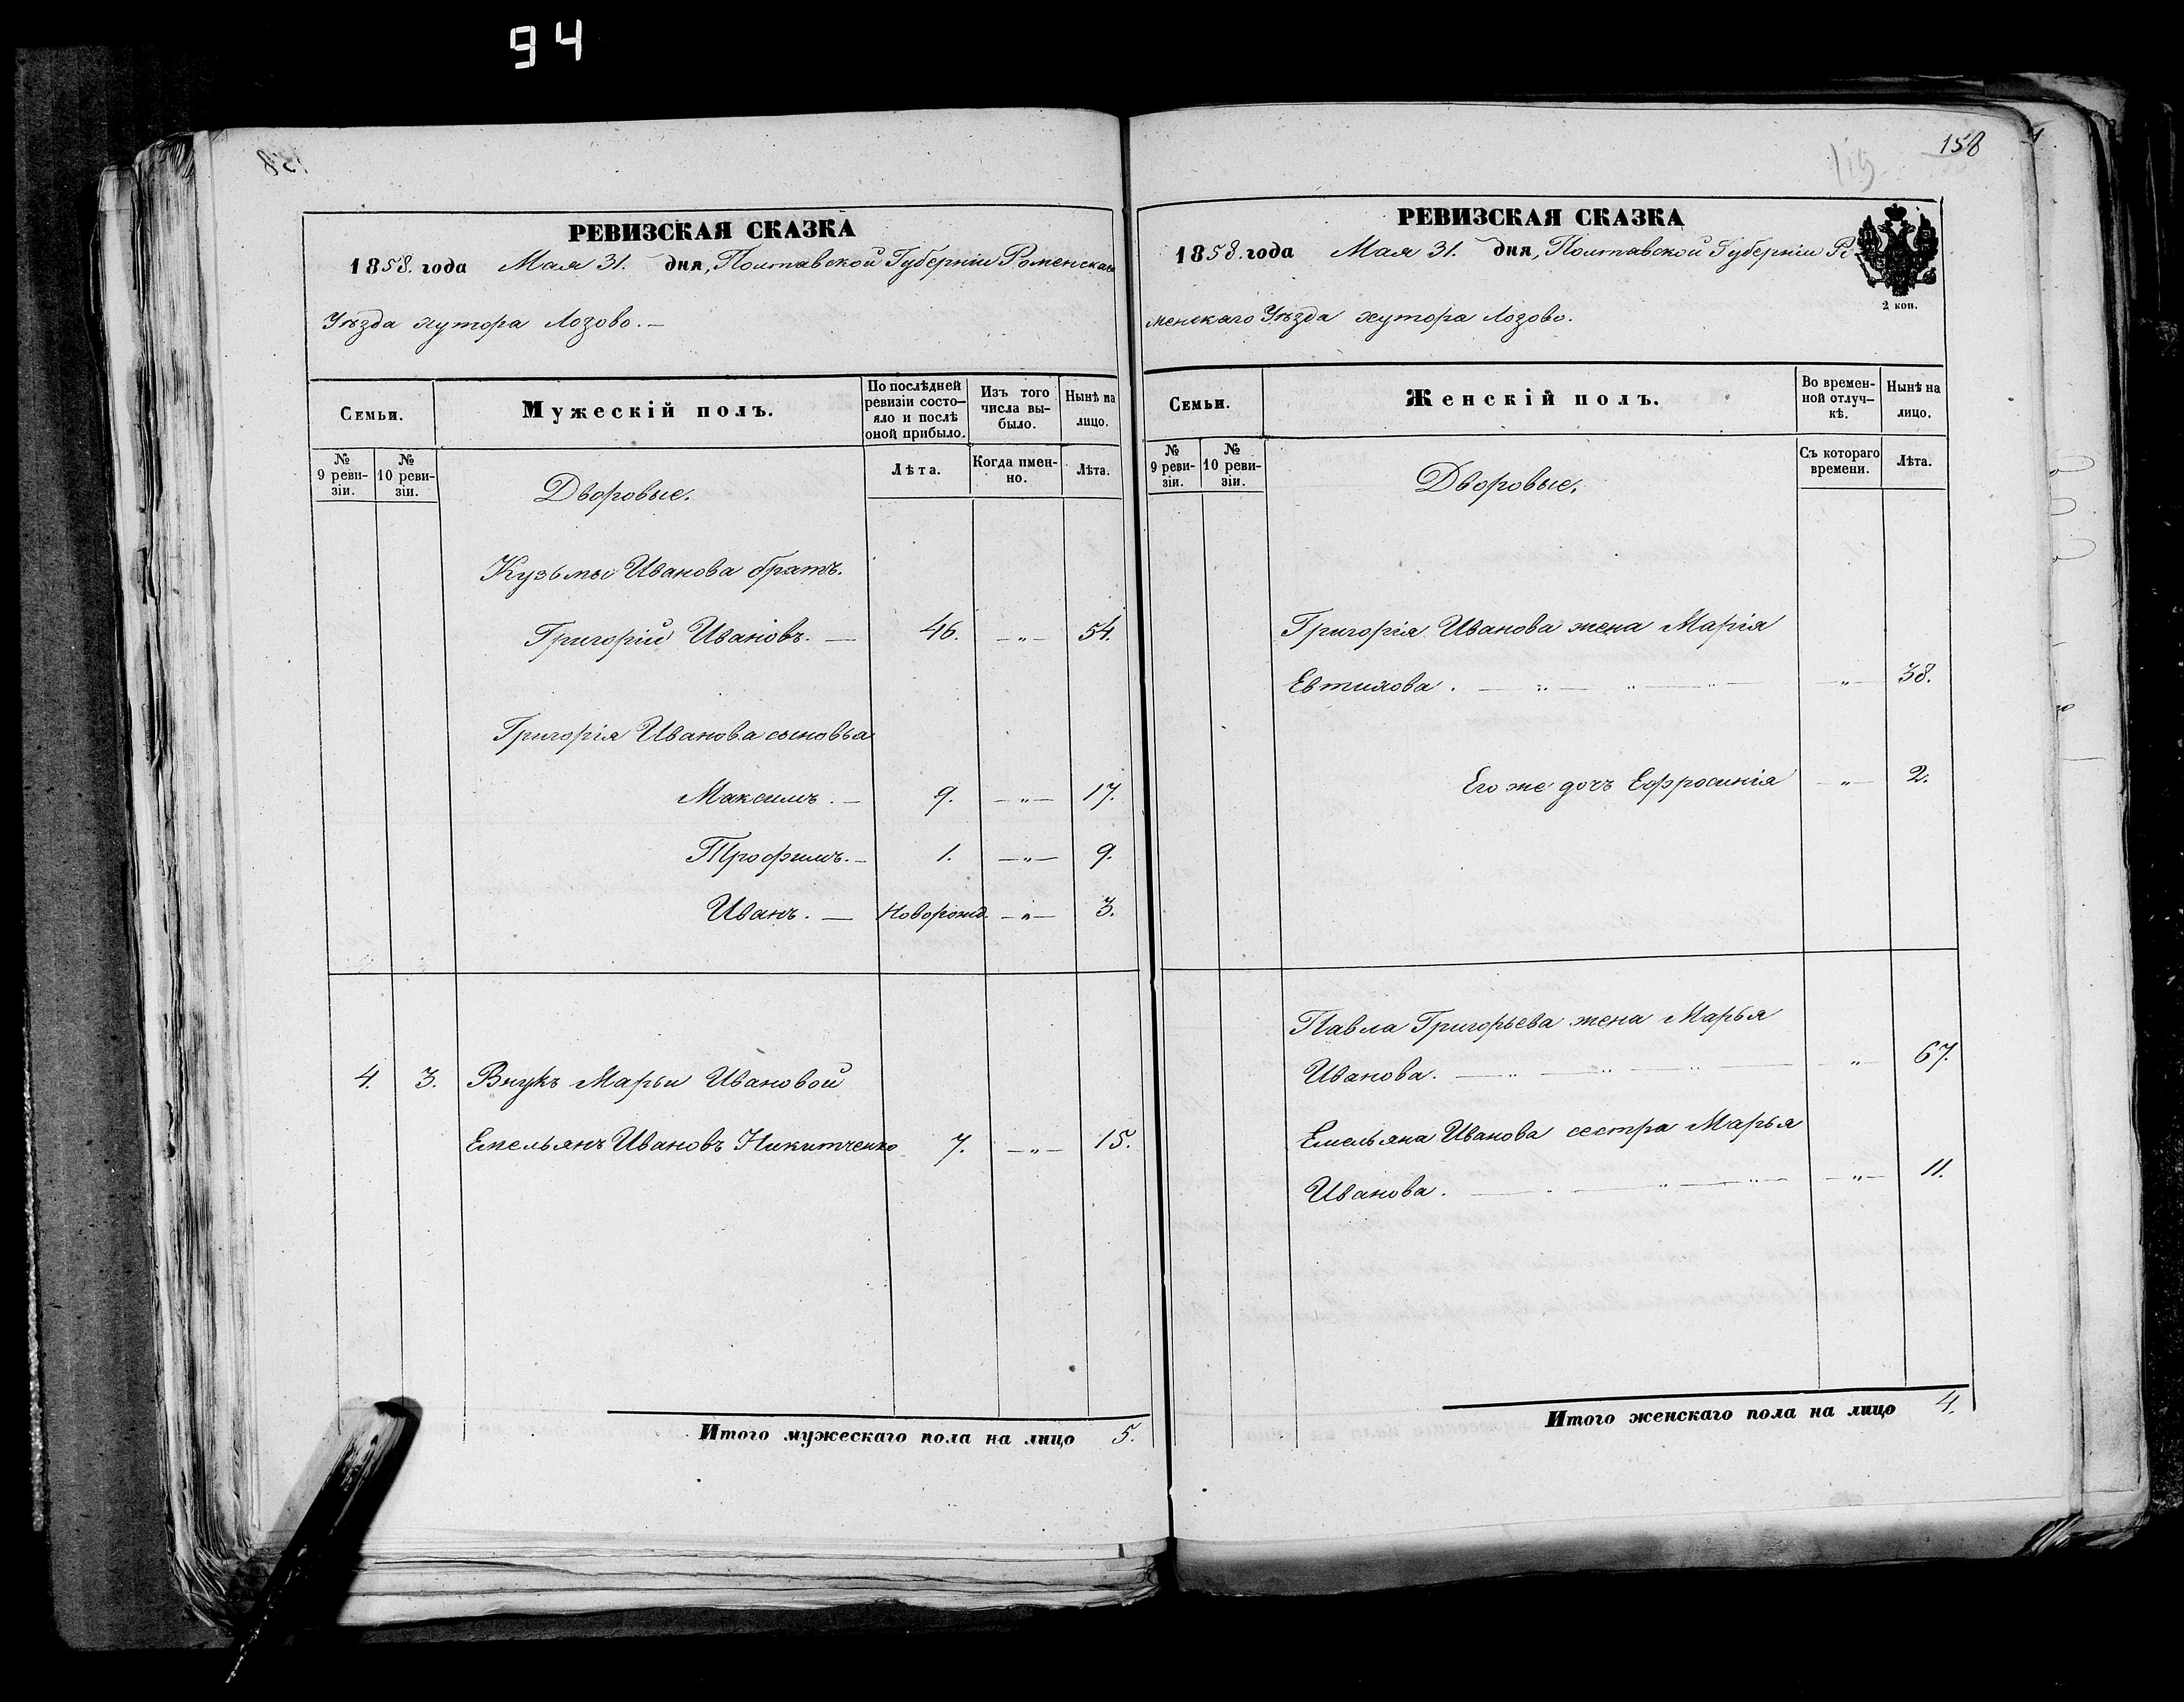 94
158
РЕВИЗСКАЯ СКАЗКА
1858. года Мая 31. дня, Полтавской Губерніи Роменскаго
Уѣзда хутора Лозово. —
Семьи.
Мужескій полъ.
По послѣдней
ревизіи состо-
яло и послѣ
оной прибыло.
Изъ того
числа вы-
было.
Нынѣ на
лицо.
№
9 реви-
зіи.
№
10 реви-
зіи.
Лѣта.
Когда имен-
но.
Лѣта.
Дворовые.
Кузьмы Иванова братъ.
Григорій Ивановъ. — 46. — „ — 54.
Григорія Иванова сыновья
Максимъ. — 9. — „ — 17.
Трофимъ. — 1. — „ — 9.
Иванъ. — Новорожд. — „ — 3.
4. 3. Внукъ Марьи Ивановой
Емельянъ Ивановъ Никитченко 7. — „ — 15.
Итого мужескаго пола на лицо 5.
158
115
РЕВИЗСКАЯ СКАЗКА
1858. года Мая 31. дня, Полтавской Губерніи Ро-
2 коп.
менскаго Уѣзда хутора Лозово.
Семьи.
Женскій полъ.
Во времен-
ной отлуч-
кѣ.
Нынѣ на
лицо.
№
9 реви-
зіи.
№
10 реви-
зіи.
Съ котораго
времени.
Лѣта.
Дворовые.
Григорія Иванова жена Марія
Евтихова. — „ — „ — „ — — „ — 38.
Его же дочь Ефросинія — „ — 2.
Павла Григорьева жена Марья
Иванова. — „ — „ — „ — „ — 67.
Емельяна Иванова сестра Марья
Иванова. — „ — „ — „ — — „ — 11.
Итого женскаго пола на лицо 4.